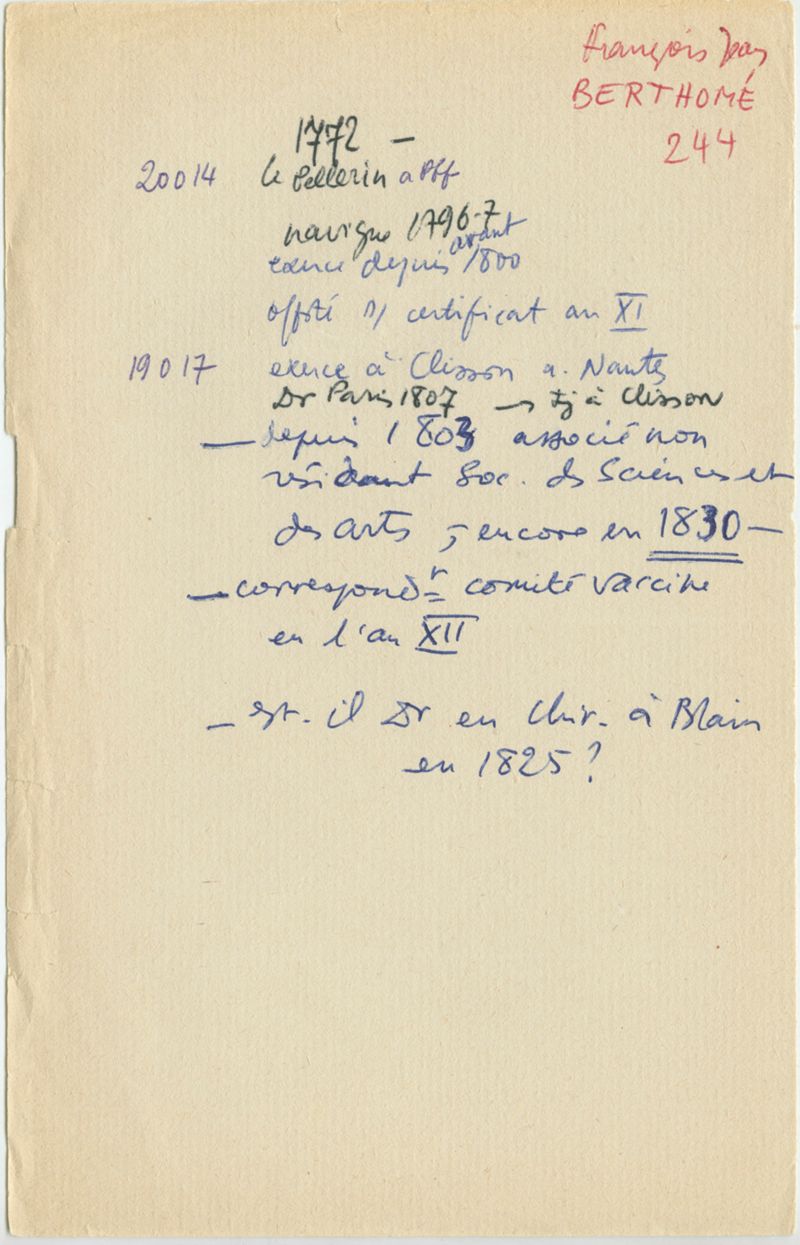 François Jean
BERTHOMÉ
244
1772 —
20014 Le Pellerin a Pbf
navigue 1796-7
avant
exerce depuis 1800
certificat an XI
19017 exerce à Clisson a. Nantes
Dr Paris 1807 → tj à Clisson
— depuis 1803 associé non
résidant Soc. des Sciences et
des arts, encore en 1830 —
— correspondr comité vaccine
en l'an XII
— est-il Dr en Chir. à Blain
en 1825 ?